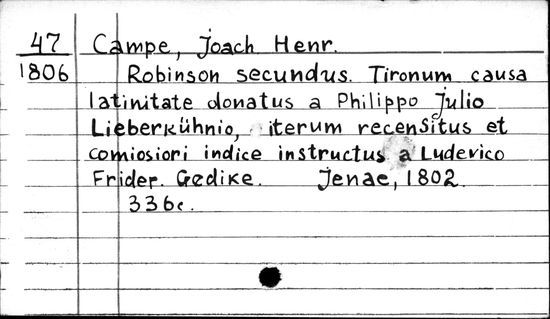 47 Campe, Joach Henr.
1806 Robinson secundus. Tironum causa
latinitate donatus a Philippo Julio
Lieberkühnio, iterum recensitus et
comiosiori indice instructus a Ludevico
Frider. Gedike. Jenae, 1802.
336c.